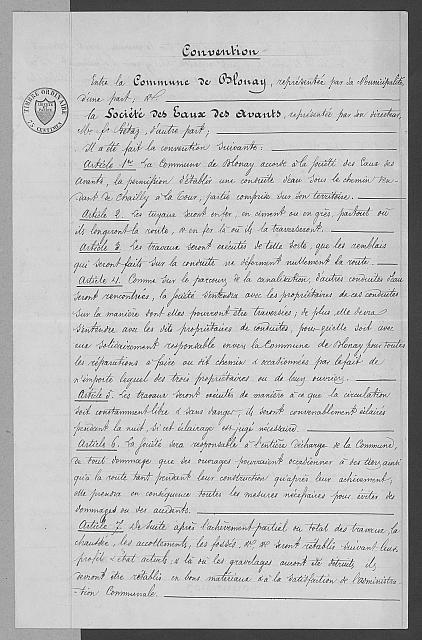 Convention
TIMBRE ORDINAIRE
Entre la Commune de Blonay, représentée par sa Municipalité,
d'une part; &.
La Société des Eaux des Avants, représentée par son directeur,
Mr. d'autre part;
Il a été fait la convention suivante:
Article 1er. La Commune de Blonay accorde à la Société des Eaux des
Avants, la permission d'établir une conduite d'eau sous le chemin ten-
dant de Chailly à la Cour, partie comprise sur son territoire.
Article 2. Les tuyaux seront en fer, en ciment ou en grès, partout où
ils longeront la route, & en fer là où ils la traverseront.
Article 3. Les travaux seront exécutés de telle sorte, que les remblais
qui seront faits sur la conduite ne déforment nullement la route.
Article 4. Comme sur le parcours de la canalisation, d'autres conduites d'eau
seront rencontrées, la Société s'entendra avec les propriétaires de ces conduites
sur la manière dont elles pourront être traversées; de plus, elle devra
s'entendre avec les dits propriétaires de conduites, pour qu'elle soit avec
eux solidairement responsable envers la Commune de Blonay pour toutes
les réparations à faire au dit chemin & occasionnées par le fait de
n'importe lequel des trois propriétaires ou de leurs ouvriers.
Article 5. Les travaux seront exécutés de manière à ce que la circulation
soit constamment libre & sans danger; ils seront convenablement éclairés
pendant la nuit, si cet éclairage est jugé nécessaire.
Article 6. La Société sera responsable à l'entière décharge de la Commune,
de tout dommage que ses ouvrages pourraient occasionner à des tiers, ainsi
qu'à la route tant pendant leur construction qu'après leur achèvement;
elle prendra en conséquence toutes les mesures nécessaires pour éviter des
dommages ou des accidents.
Article 7. De suite après l'achèvement partiel ou total des travaux, la
chaussée, les accottements, les fossés, &. &. seront rétablis suivant leurs
profil & état actuels; & là où les gravelages auront été détruits, ils
seront être rétablis en bons matériaux & à la satisfaction de l'Administra-
-tion Communale.